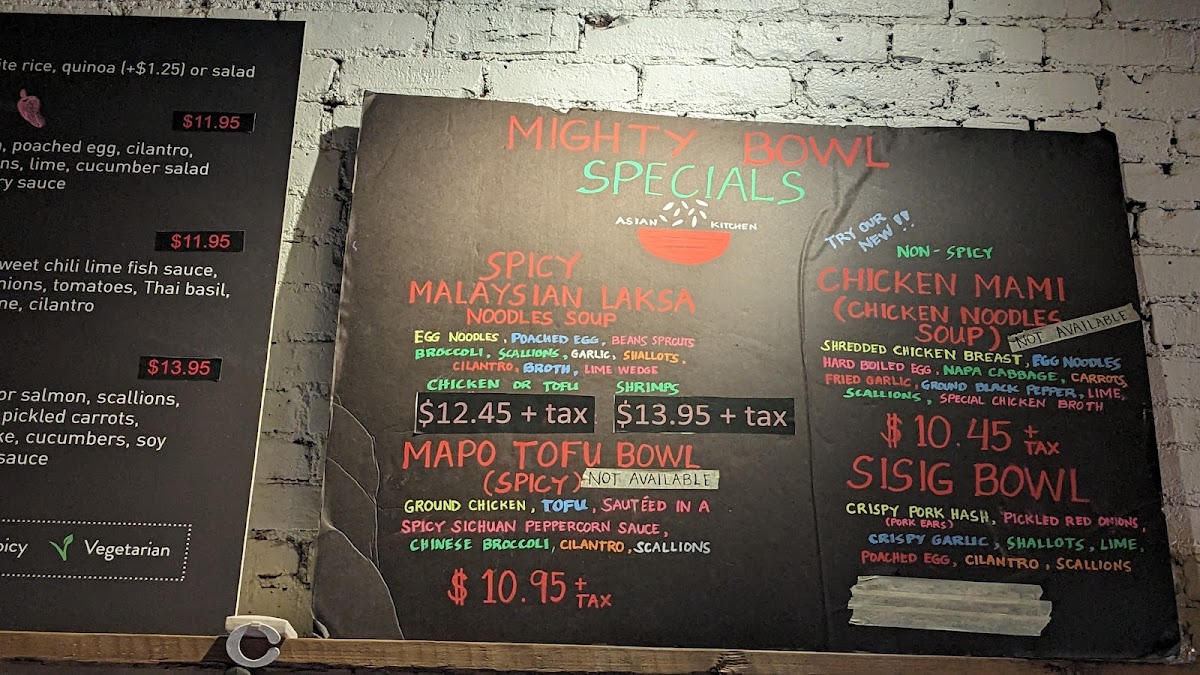 ite rice, quinoa (+$1.25) or salad
$11.95
, poached egg, cilantro,
ns, lime, cucumber salad
ry sauce
$11.95
weet chili lime fish sauce,
nions, tomatoes, Thai basil,
me, cilantro
$13.95
or salmon, scallions,
pickled carrots,
ke, cucumbers, soy
sauce
picy Vegetarian
MIGHTY BOWL
SPECIALS
ASIAN KITCHEN
SPICY
MALAYSIAN LAKSA
NOODLES SOUP
EGG NOODLES, POACHED EGG, BEANS SPROUTS
BROCCOLI, SCALLIONS, GARLIC, SHALLOTS,
CILANTRO, BROTH, LIME WEDGE
CHICKEN OR TOFU SHRIMPS
$12.45 + tax $13.95 + tax
MAPO TOFU BOWL
(SPICY) NOT AVAILABLE
GROUND CHICKEN, TOFU, SAUTÉED IN A
SPICY SICHUAN PEPPERCORN SAUCE,
CHINESE BROCCOLI, CILANTRO, SCALLIONS
$10.95 + TAX
TRY OUR
NEW!!
NON-SPICY
CHICKEN MAMI
(CHICKEN NOODLES
SOUP) NOT AVAILABLE
SHREDDED CHICKEN BREAST, EGG NOODLES
HARD BOILED EGG, NAPA CABBAGE, CARROTS,
FRIED GARLIC, GROUND BLACK PEPPER, LIME,
SCALLIONS, SPECIAL CHICKEN BROTH
$10.45 + TAX
SISIG BOWL
CRISPY PORK HASH, PICKLED RED ONIONS,
(PORK EARS)
CRISPY GARLIC, SHALLOTS, LIME,
POACHED EGG, CILANTRO, SCALLIONS